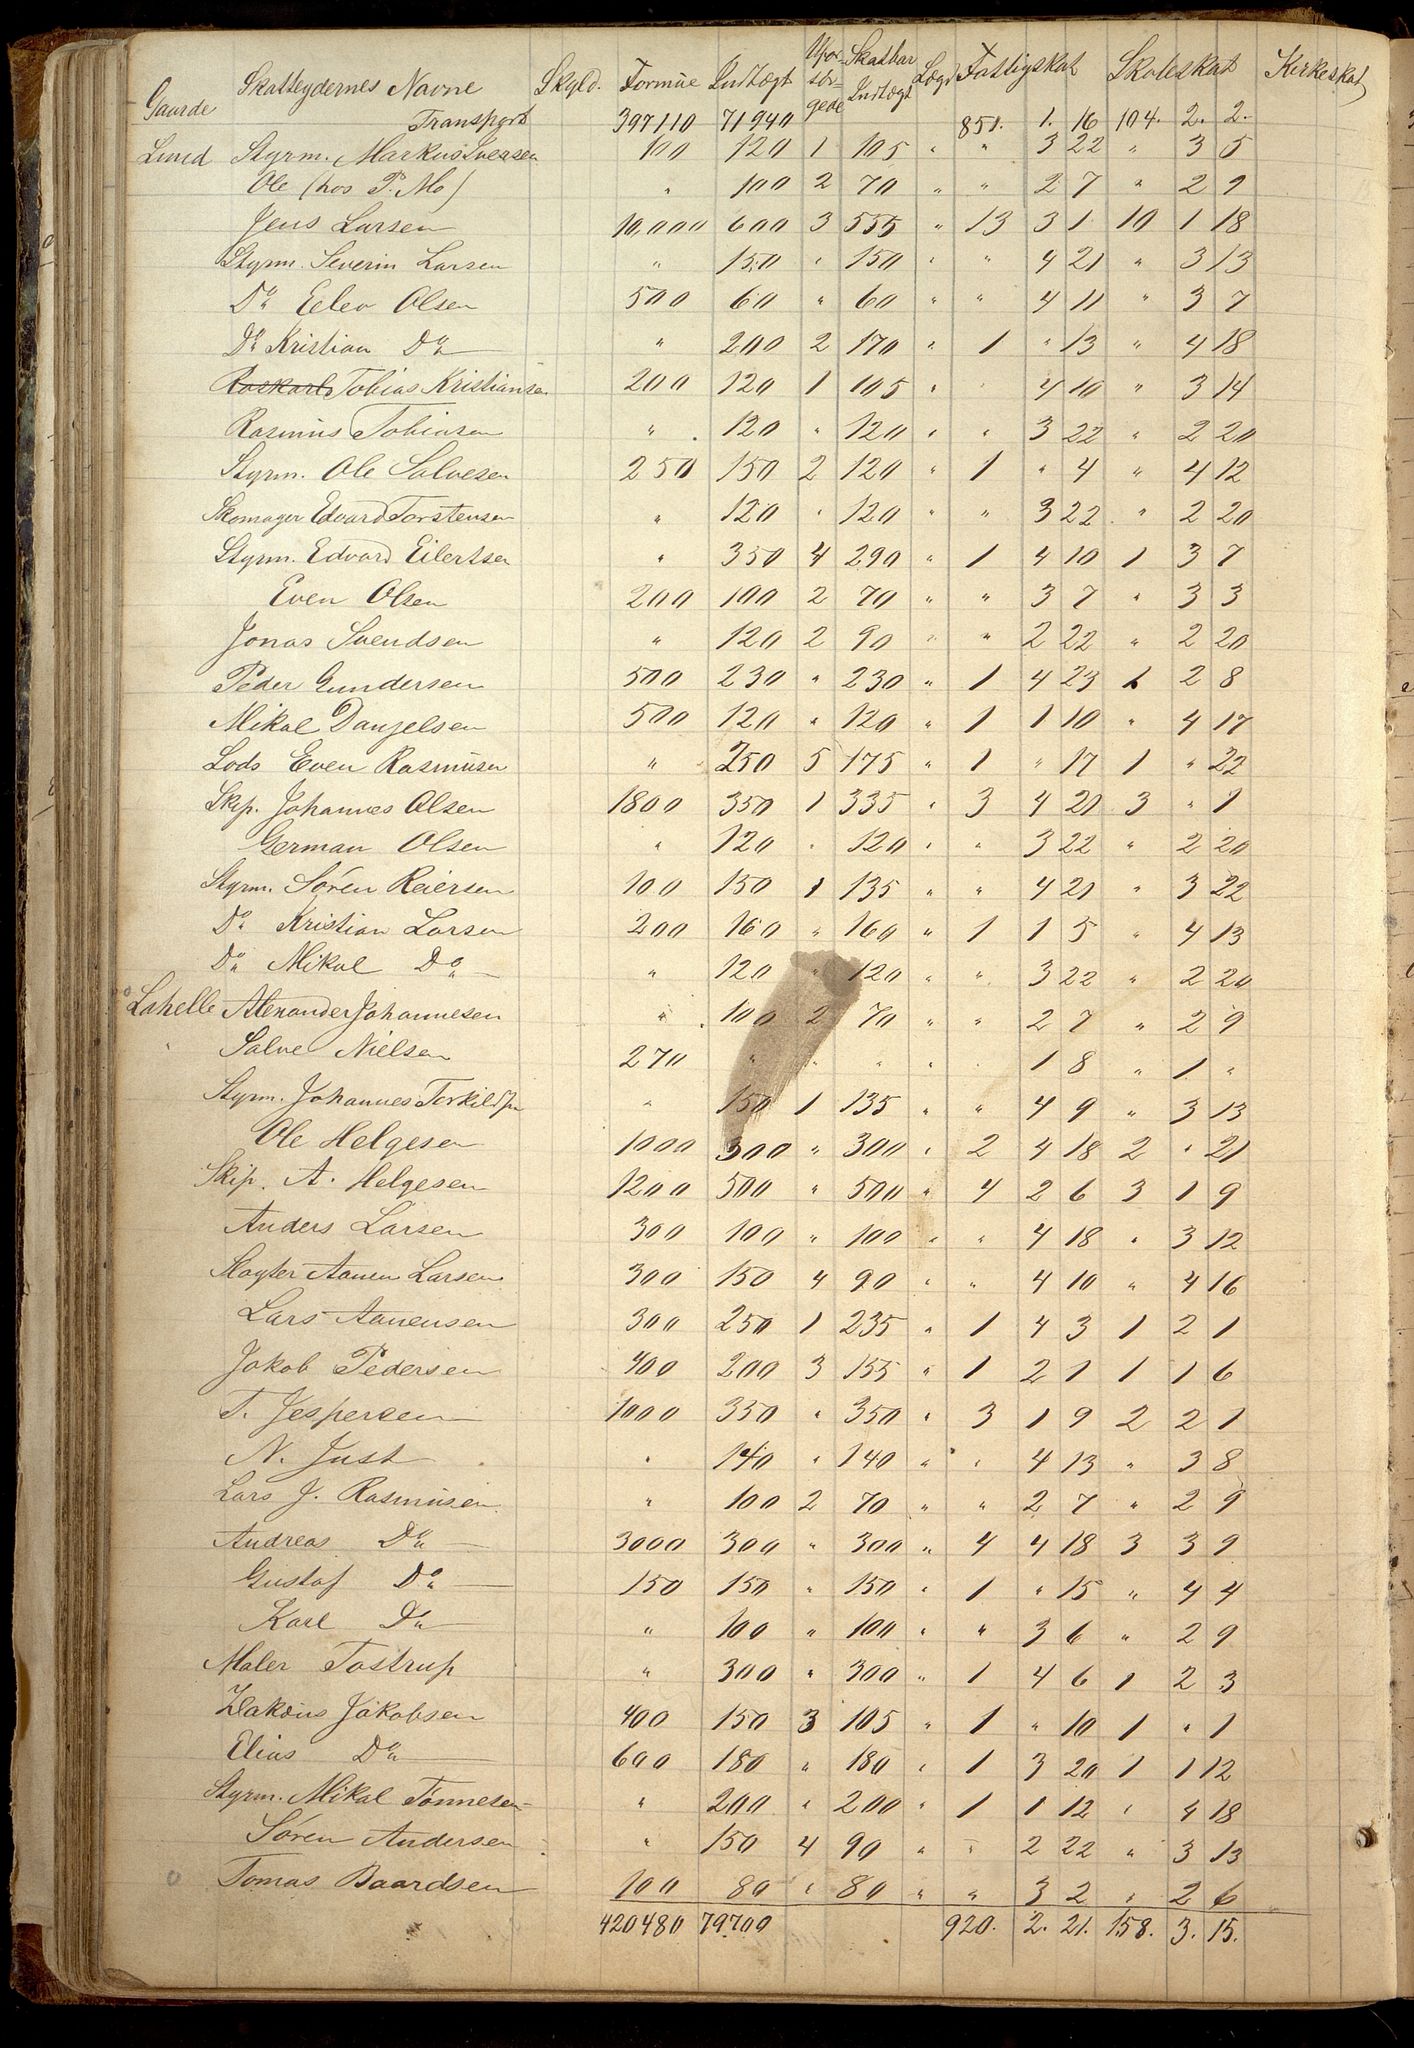 Gaarde Skatteydernes Navne Skyld. Formue Indtægt Ufor-sör-gede Skatbar Indtægt Lægd Fattigskat Skoleskat Kirkeskat
Transport 397110 71940 851. 1. 16 104. 2. 2.
Lund Styrm. Markus Iversen 100 120 1 105 " " 3 22 " 3 5
Ole (hos P. Mo) " 100 2 70 " " 2 7 " 2 9
Jens Larsen 10,000 600 3 555 " 13 3 1 10 1 18
Styrm. Severin Larsen " 150 " 150 " " 4 21 " 3 13
Do Eelev Olsen 500 60 " 60 " " 4 11 " 3 7
Do Kristian Do " 200 2 170 " 1 " 13 " 4 18
Tobias Kristiansen 200 120 1 105 " " 4 10 " 3 14
Rasmus Tobiasen " 120 " 120 " " 3 22 " 2 20
Styrm. Ole Salvesen 250 150 2 120 " 1 " 4 " 4 12
Skomager Edvard Torstensen " 120 " 120 " " 3 22 " 2 20
Styrm. Edvard Eilertsen " 350 4 290 " 1 4 10 1 3 7
Even Olsen 200 100 2 70 " " 3 7 " 3 3
Jonas Svendsen " 120 2 90 " " 2 22 " 2 20
Peder Gundersen 500 230 " 230 " 1 4 23 1 2 8
Mikal Danjelsen 500 120 " 120 " 1 1 10 " 4 17
Lods Even Rasmusen " 250 5 175 " 1 " 17 1 " 22
Skip. Johannes Olsen 1800 350 1 335 " 3 4 20 3 " 1
German Olsen " 120 " 120 " " 3 22 " 2 20
Styrm. Sören Reiersen 100 150 1 135 " " 4 21 " 3 22
Do Kristian Larsen 200 160 " 160 " 1 1 5 " 4 13
Do Mikal Do " 120 " 120 " " 3 22 " 2 20
Lahelle Alexander Johannesen " 100 2 70 " " 2 7 " 2 9
" Salve Nielsen 270 " " " " " 1 8 " 1 "
Styrm. Johannes Torkildsen " 150 1 135 " " 4 9 " 3 13
Ole Helgesen 1000 300 " 300 " 2 4 18 2 " 21
Skip. A. Helgesen 1200 500 " 500 " 4 2 6 3 1 9
Anders Larsen 300 100 " 100 " " 4 18 " 3 12
Slagter Aanen Larsen 300 150 4 90 " " 4 10 " 4 16
Lars Aanensen 300 250 1 235 " 1 4 3 1 2 1
Jakob Pedersen 400 200 3 155 " 1 2 1 1 1 6
T. Jespersen 1000 350 " 350 " 3 1 9 2 2 1
N. Just " 140 " 140 " " 4 13 " 3 8
Lars J. Rasmusen " 100 2 70 " " 2 7 " 2 9
Andreas Do 3000 300 " 300 " 4 4 18 3 3 9
Gustaf Do 150 150 " 150 " 1 " 15 " 4 4
Karl Do " 100 " 100 " " 3 6 " 2 9
Maler Tostrup " 300 " 300 " 1 4 6 1 2 3
Zakæus Jakobsen 400 150 3 105 " 1 " 10 1 " 1
Elias Do 600 180 " 180 " 1 3 20 1 1 12
Styrm. Mikal Tönnesen " 200 " 200 " 1 1 12 " 4 18
Sören Andersen " 150 4 90 " " 2 22 " 3 13
Tomas Baardsen 100 80 " 80 " " 3 2 " 2 6
420480 79700 920. 2. 21. 158. 3. 15.